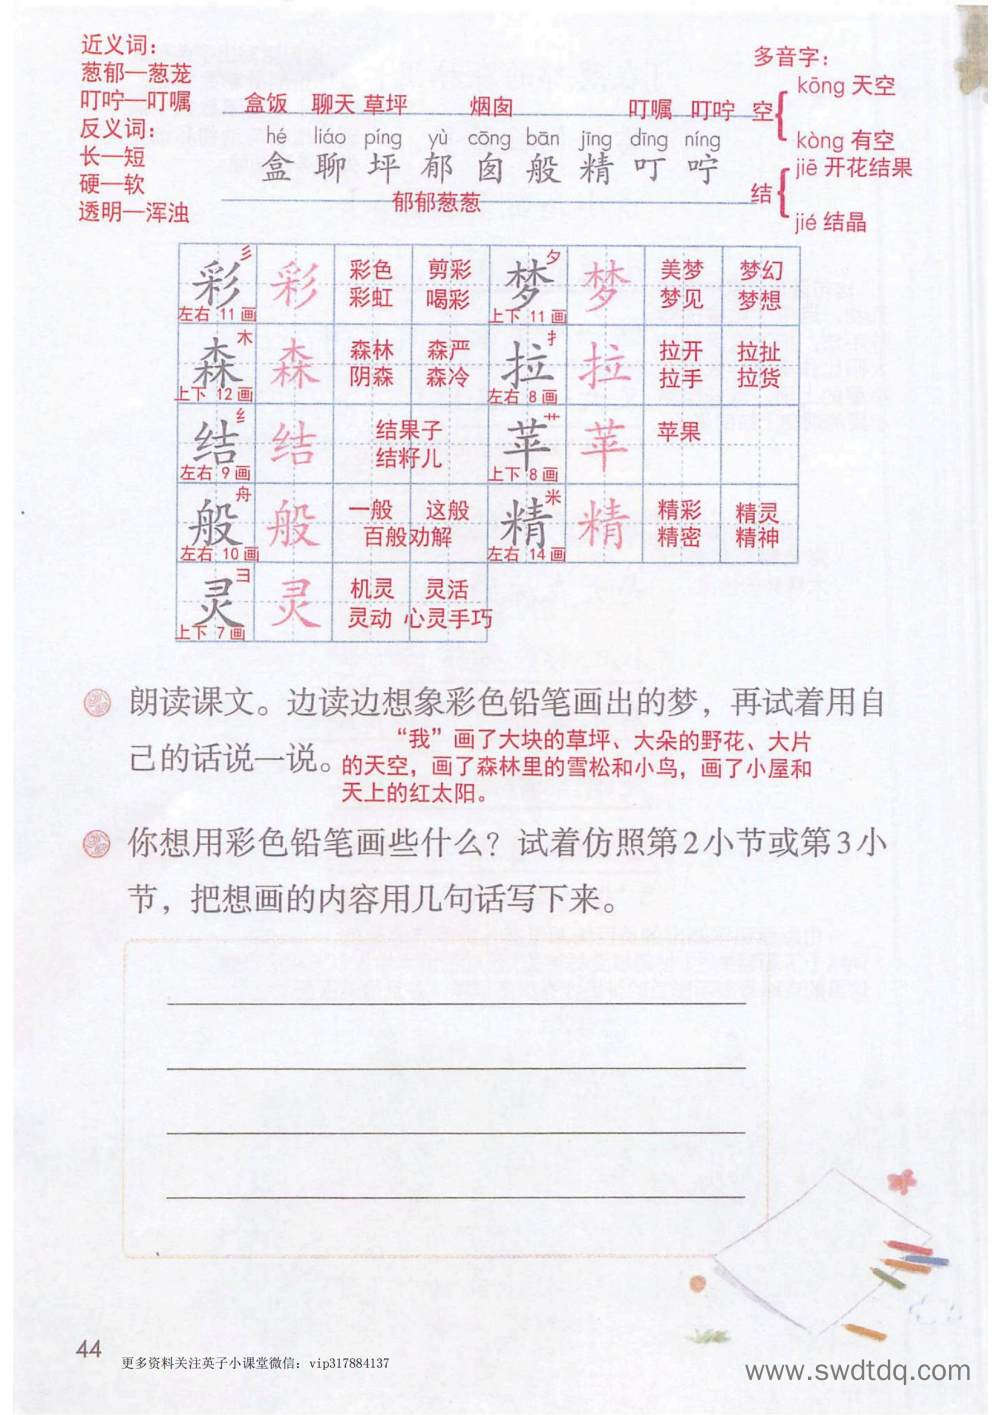 近义词：
葱郁—葱茏
叮咛—叮嘱
反义词：
长—短
硬—软
透明—浑浊
多音字：
空 kōng 天空
kòng 有空
结 jiē 开花结果
jié 结晶
盒饭 聊天 草坪 烟囱 叮嘱 叮咛
hé liáo píng yù cōng bān jīng dīng níng
盒 聊 坪 郁 囱 般 精 叮 咛
郁郁葱葱
彩 彡 左右 11画 彩 彩色 剪彩 彩虹 喝彩
梦 夕 上下 11画 梦 美梦 梦幻 梦见 梦想
森 木 上下 12画 森 森林 森严 阴森 森冷
拉 扌 左右 8画 拉 拉开 拉扯 拉手 拉货
结 纟 左右 9画 结 结果子 结籽儿
苹 艹 上下 8画 苹 苹果
般 舟 左右 10画 般 一般 这般 百般劝解
精 米 左右 14画 精 精彩 精灵 精密 精神
灵 彐 上下 7画 灵 机灵 灵活 灵动 心灵手巧
朗读课文。边读边想象彩色铅笔画出的梦，再试着用自
己的话说一说。
“我”画了大块的草坪、大朵的野花、大片
的天空，画了森林里的雪松和小鸟，画了小屋和
天上的红太阳。
你想用彩色铅笔画些什么？试着仿照第2小节或第3小
节，把想画的内容用几句话写下来。
44
更多资料关注英子小课堂微信：vip317884137
www.swdtdq.com